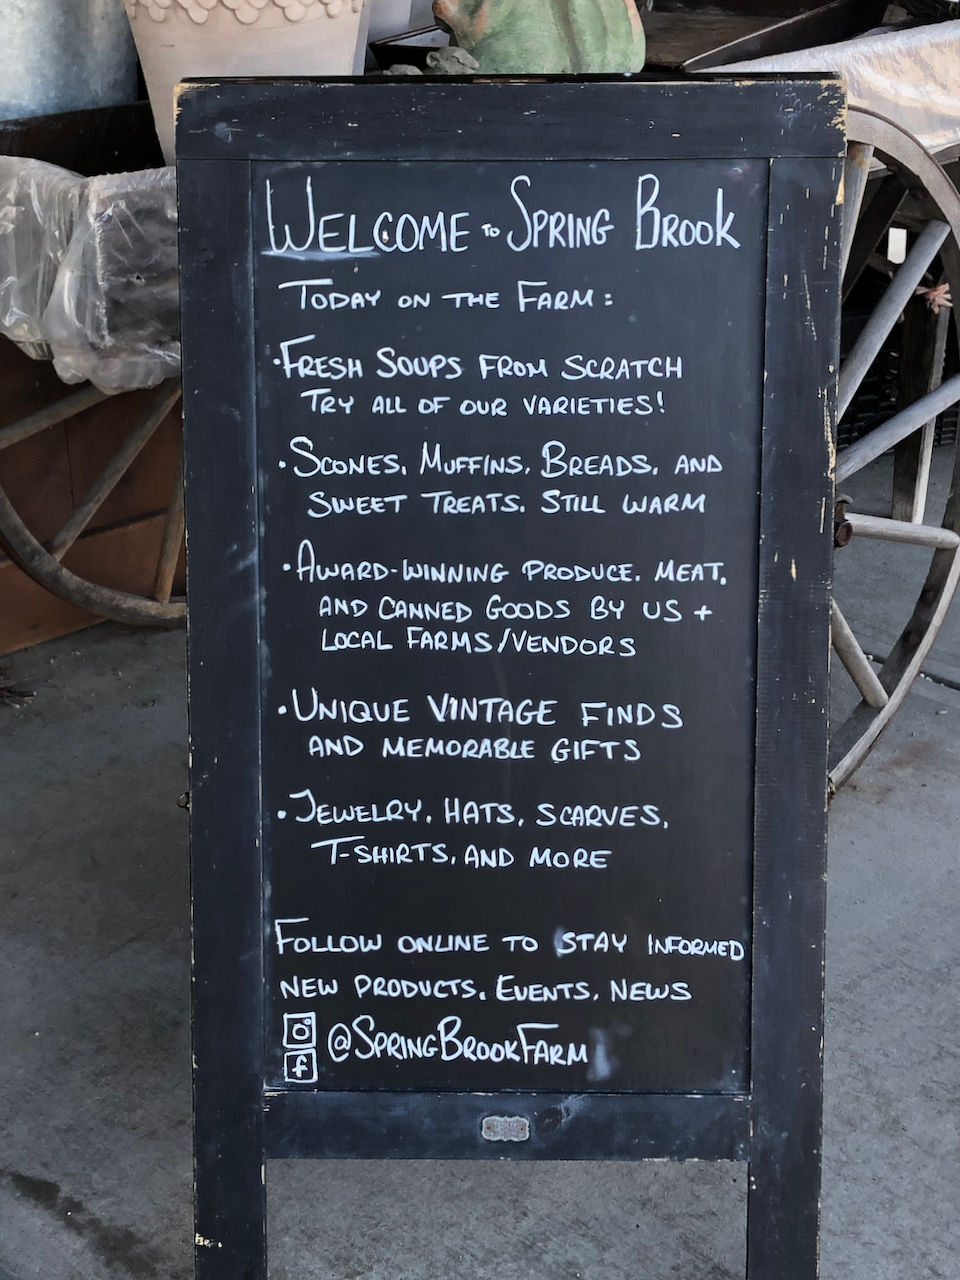 WELCOME TO SPRING BROOK
TODAY ON THE FARM:
·FRESH SOUPS FROM SCRATCH
TRY ALL OF OUR VARIETIES!
·SCONES, MUFFINS, BREADS, AND
SWEET TREATS. STILL WARM
·AWARD-WINNING PRODUCE, MEAT,
AND CANNED GOODS BY US +
LOCAL FARMS/VENDORS
·UNIQUE VINTAGE FINDS
AND MEMORABLE GIFTS
·JEWELRY, HATS, SCARVES,
T-SHIRTS, AND MORE
FOLLOW ONLINE TO STAY INFORMED
NEW PRODUCTS, EVENTS, NEWS
f @SPRINGBROOKFARM